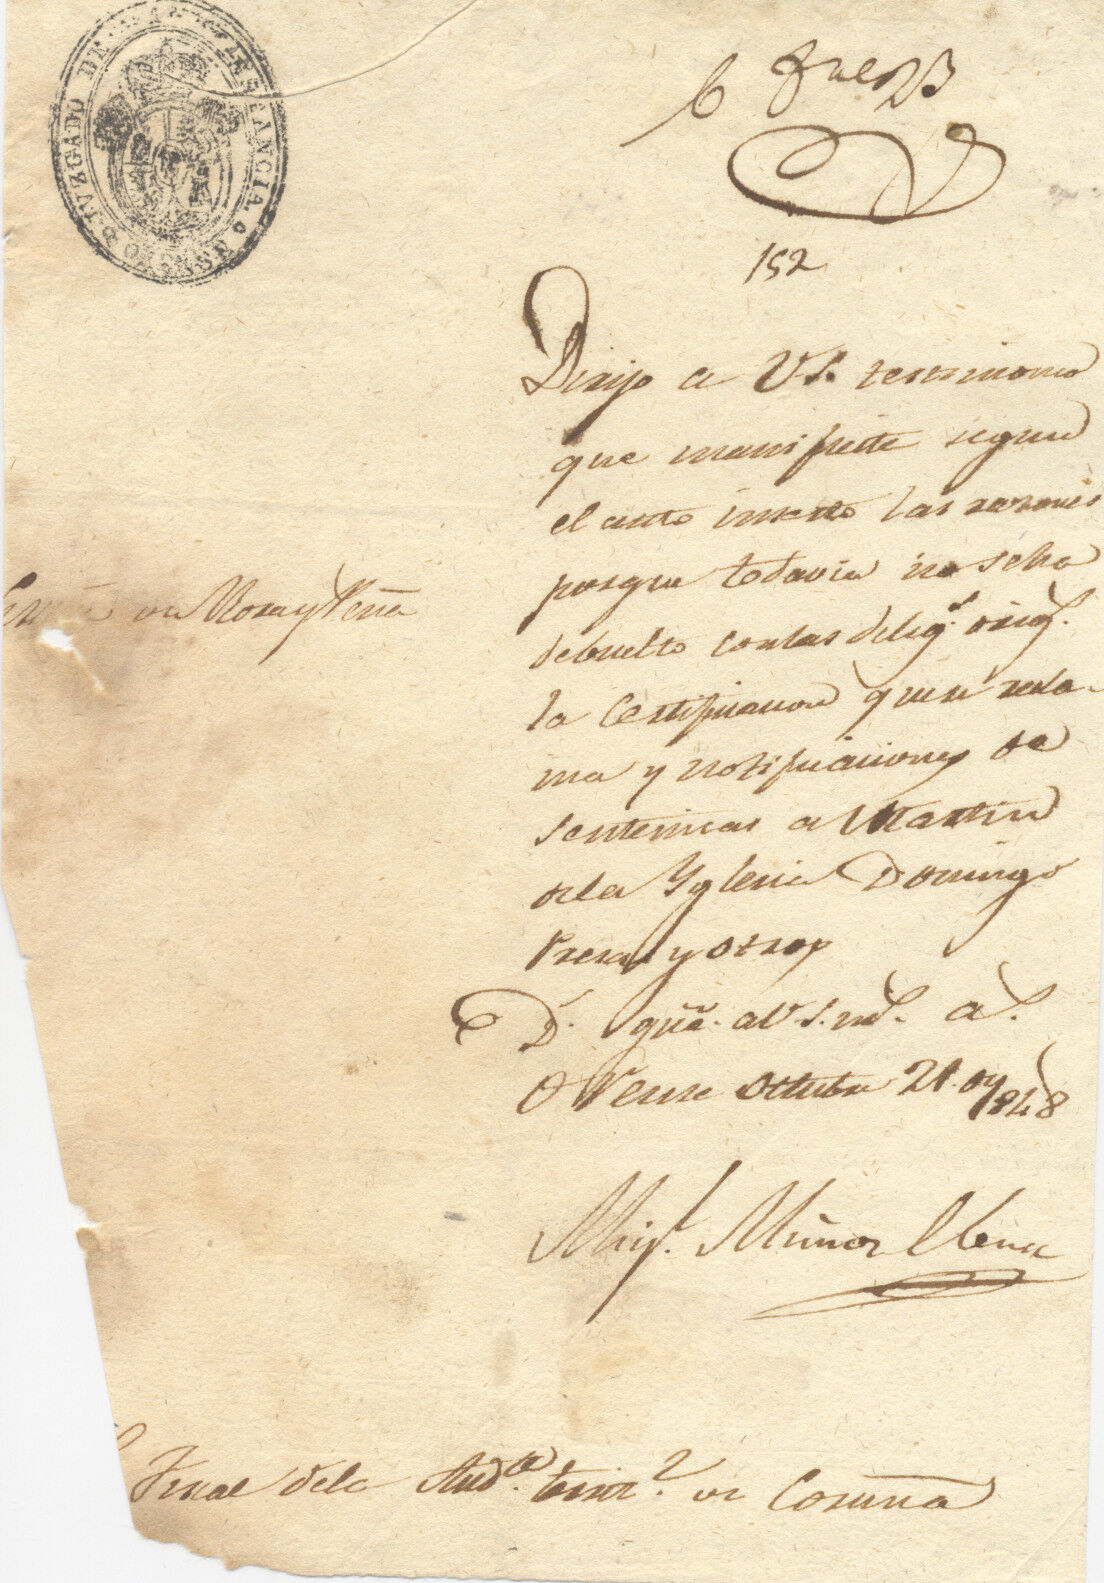 JUZGADO DE INSTANCIA
ORENSE
152
Dirijo a V.S. testimonio
que manifieste segun
el auto inserto las razones
porque todavia no seha
debuelto conlas delig.s orig.s
la Certificacion quese recla-
ma y notificaciones de
sentencias a Martin
dela Yglesia Domingo
y otros
D.s gũe. aV.S. m.s a.s
Orense Octubre 21 de 1848
Mig.l Muñoz
de Mora y Peña
Fiscal dela Aud.cia territ.l de Coruña